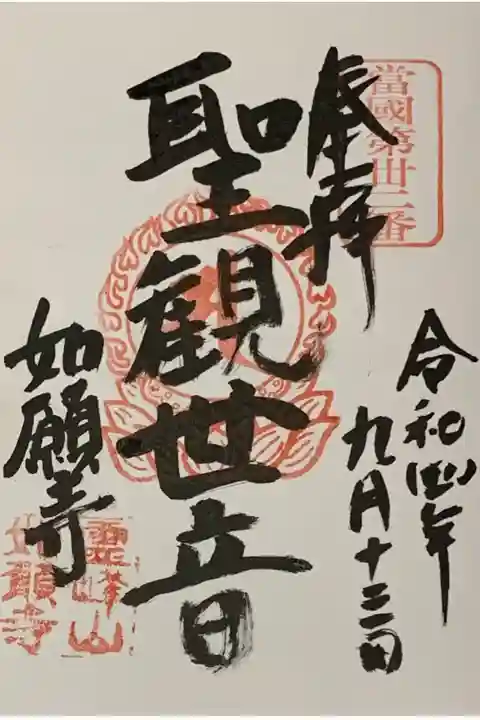 當國第卅二番
奉拝
令和四年
九月十三日
聖観世音
如願寺
靈峰山
如願寺